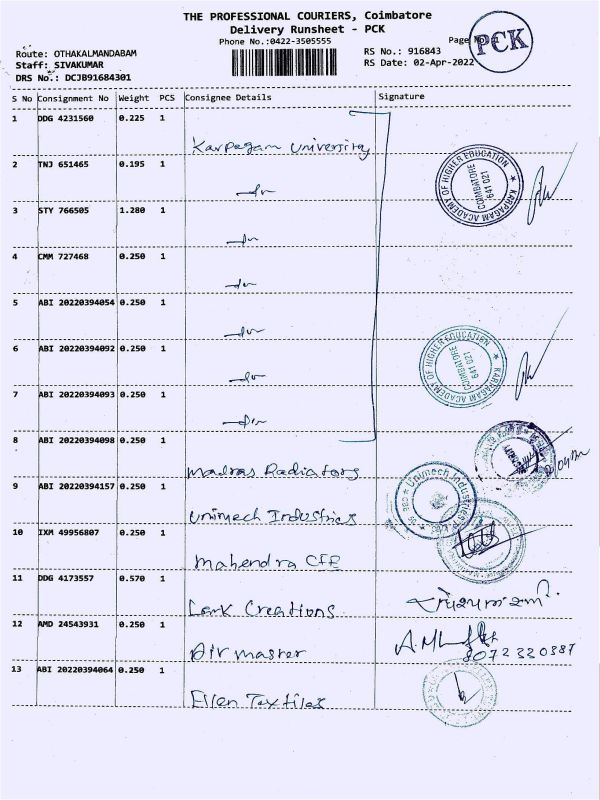 THE PROFESSIONAL COURIERS, Coimbatore
Delivery Runsheet - PCK
Phone No.:0422-3505555
Page No.:1
PCK
Route: OTHAKALMANDABAM
Staff: SIVAKUMAR
DRS No.: DCJB91684301
RS No.: 916843
RS Date: 02-Apr-2022
S No Consignment No Weight PCS Consignee Details Signature
1 DDG 4231560 0.225 1
Karpagam University
2 TNJ 651465 0.195 1
KARPAGAM ACADEMY OF HIGHER EDUCATION
COIMBATORE
641 021
3 STY 766505 1.280 1
4 CMM 727468 0.250 1
5 ABI 20220394054 0.250 1
6 ABI 20220394092 0.250 1
KARPAGAM ACADEMY OF HIGHER EDUCATION
COIMBATORE
641 021
7 ABI 20220394093 0.250 1
8 ABI 20220394098 0.250 1
Madras Radiators
9 ABI 20220394157 0.250 1
Unimech Industries
Unimech Industries
10 IXM 49956807 0.250 1
Mahendra CIE
11 DDG 4173557 0.570 1
Lark Creations
12 AMD 24543931 0.250 1
Air master
8072320387
13 ABI 20220394064 0.250 1
Ellen Textiles